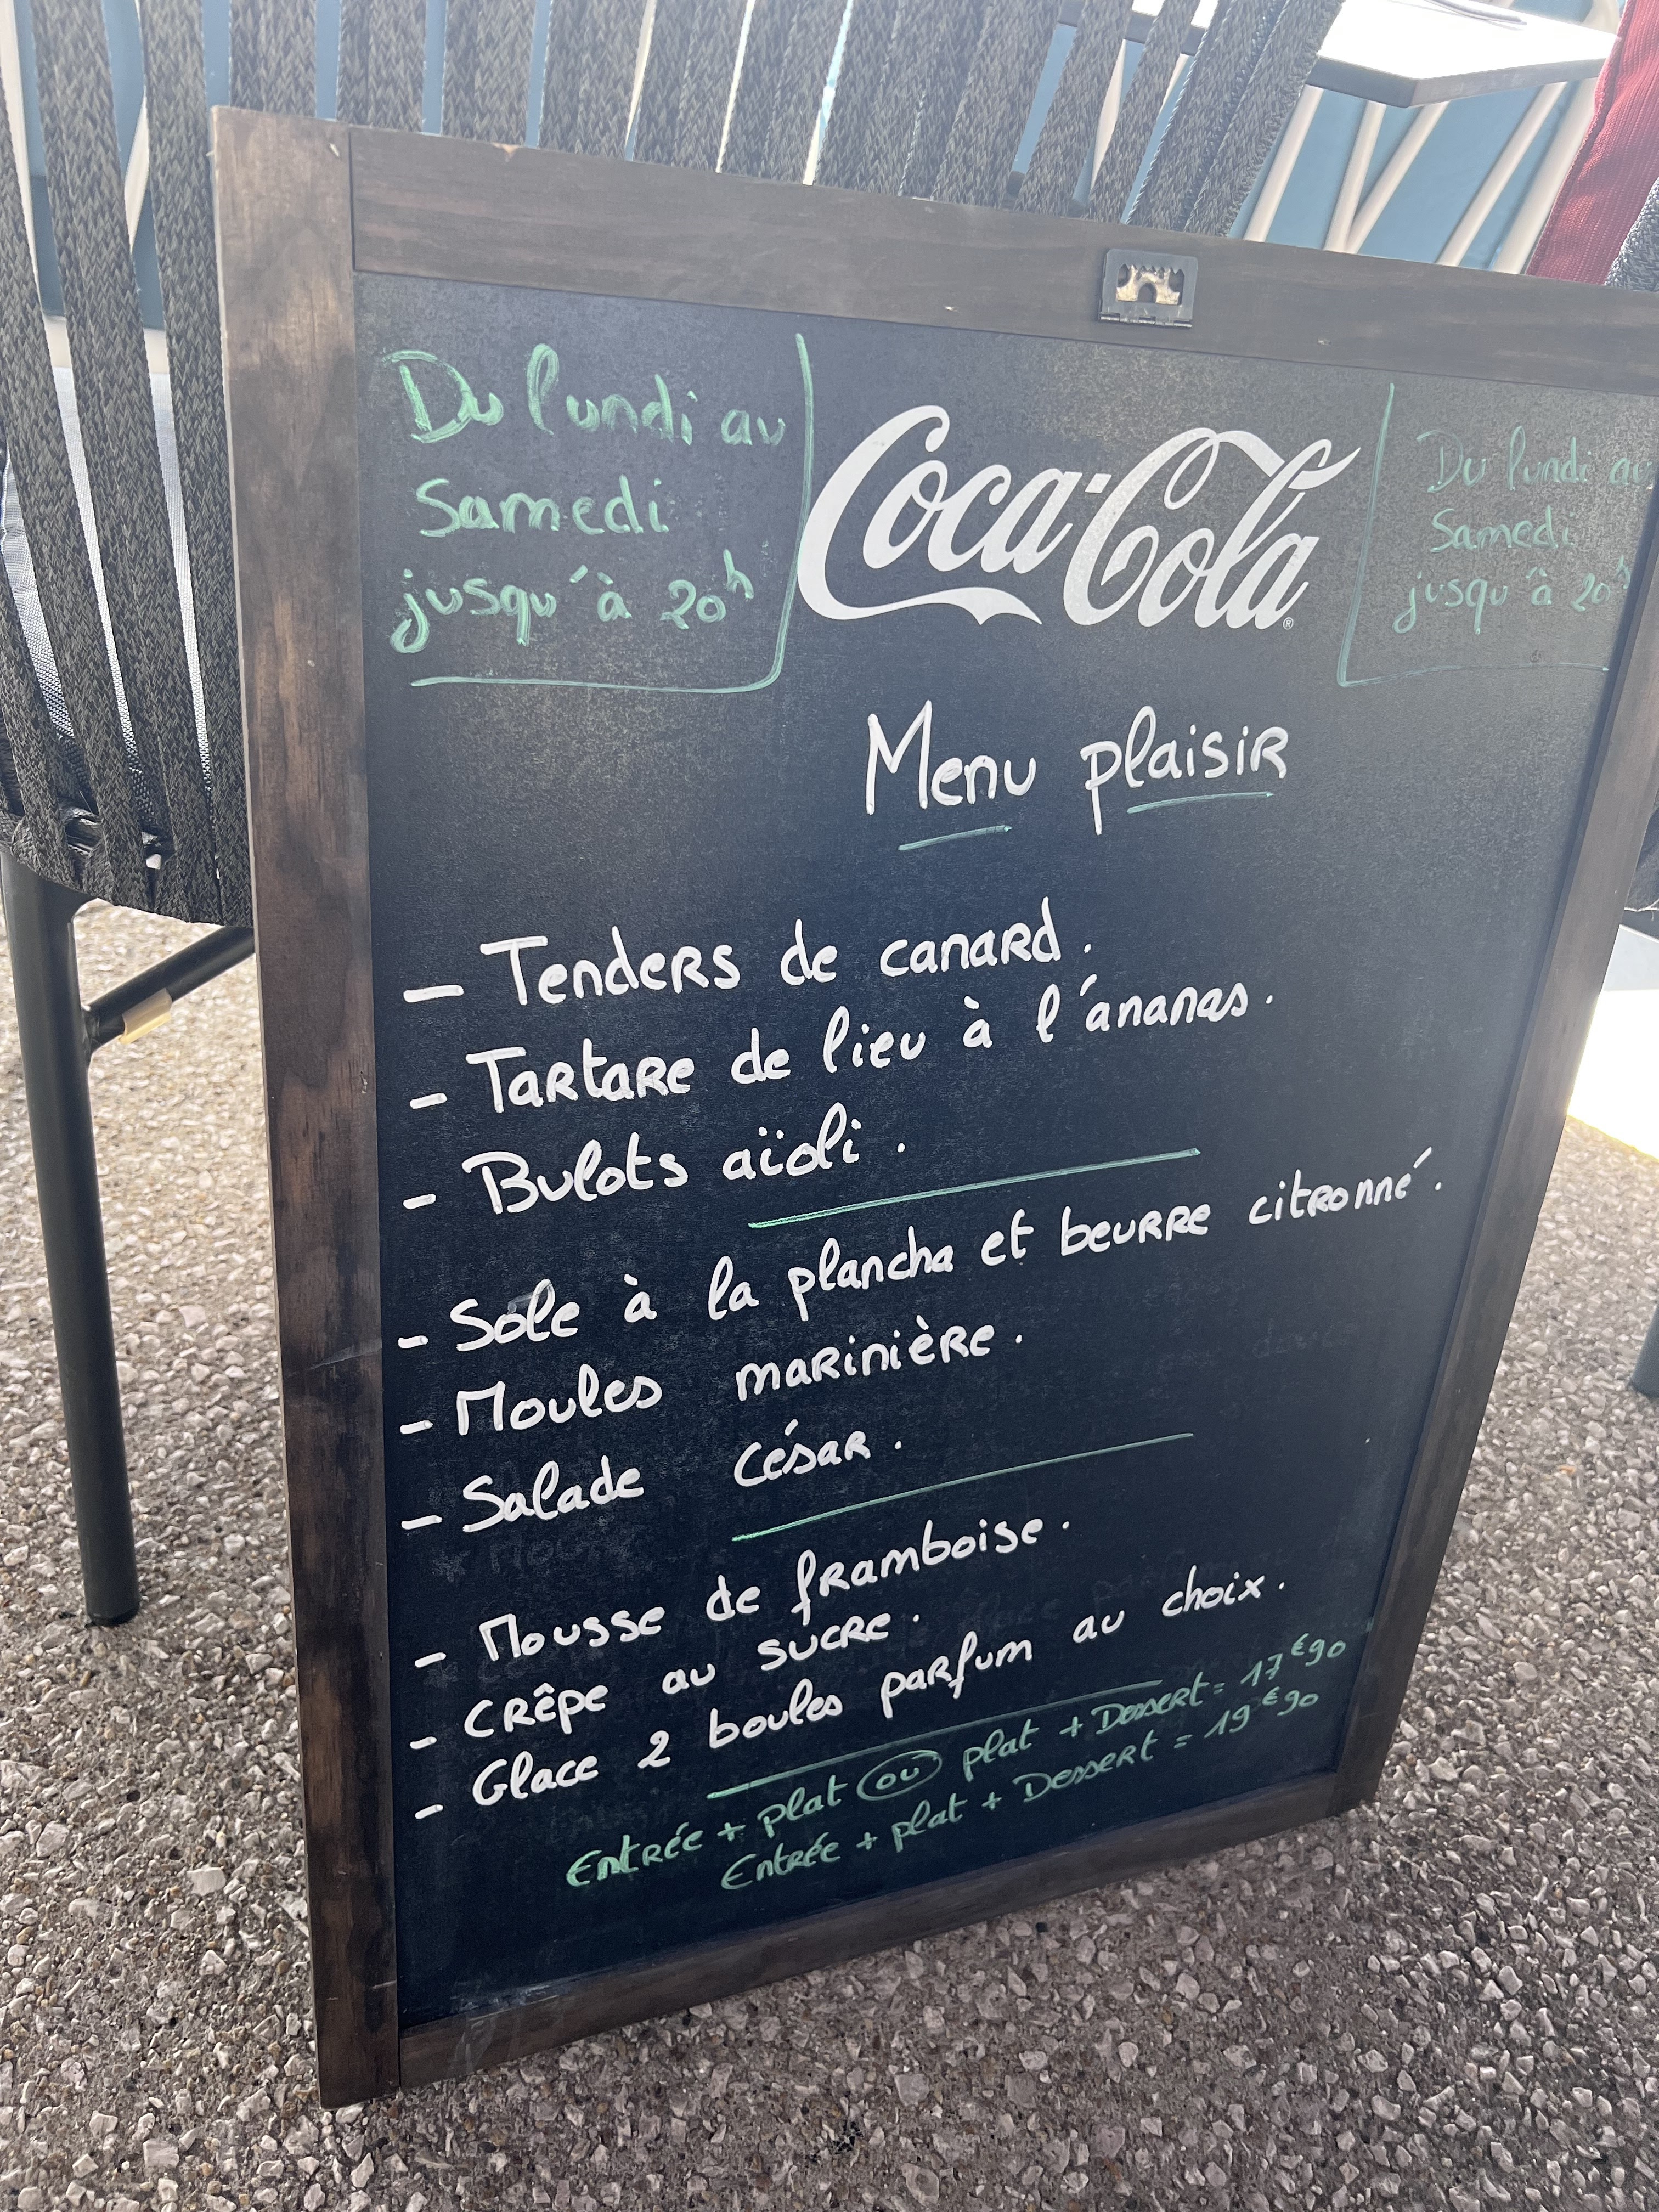 Du lundi au
Samedi
jusqu'à 20h
Coca-Cola®
Du lundi au
Samedi
jusqu'à 20h
Menu plaisir
- Tenders de canard.
- Tartare de lieu à l'ananas.
- Bulots aïoli.
- Sole à la plancha et beurre citronné.
- Moules marinière.
- Salade césar.
- Mousse de framboise.
- Crêpe au sucre.
- Glace 2 boules parfum au choix.
Entrée + plat ou plat + Dessert = 17€90
Entrée + plat + Dessert = 19€90